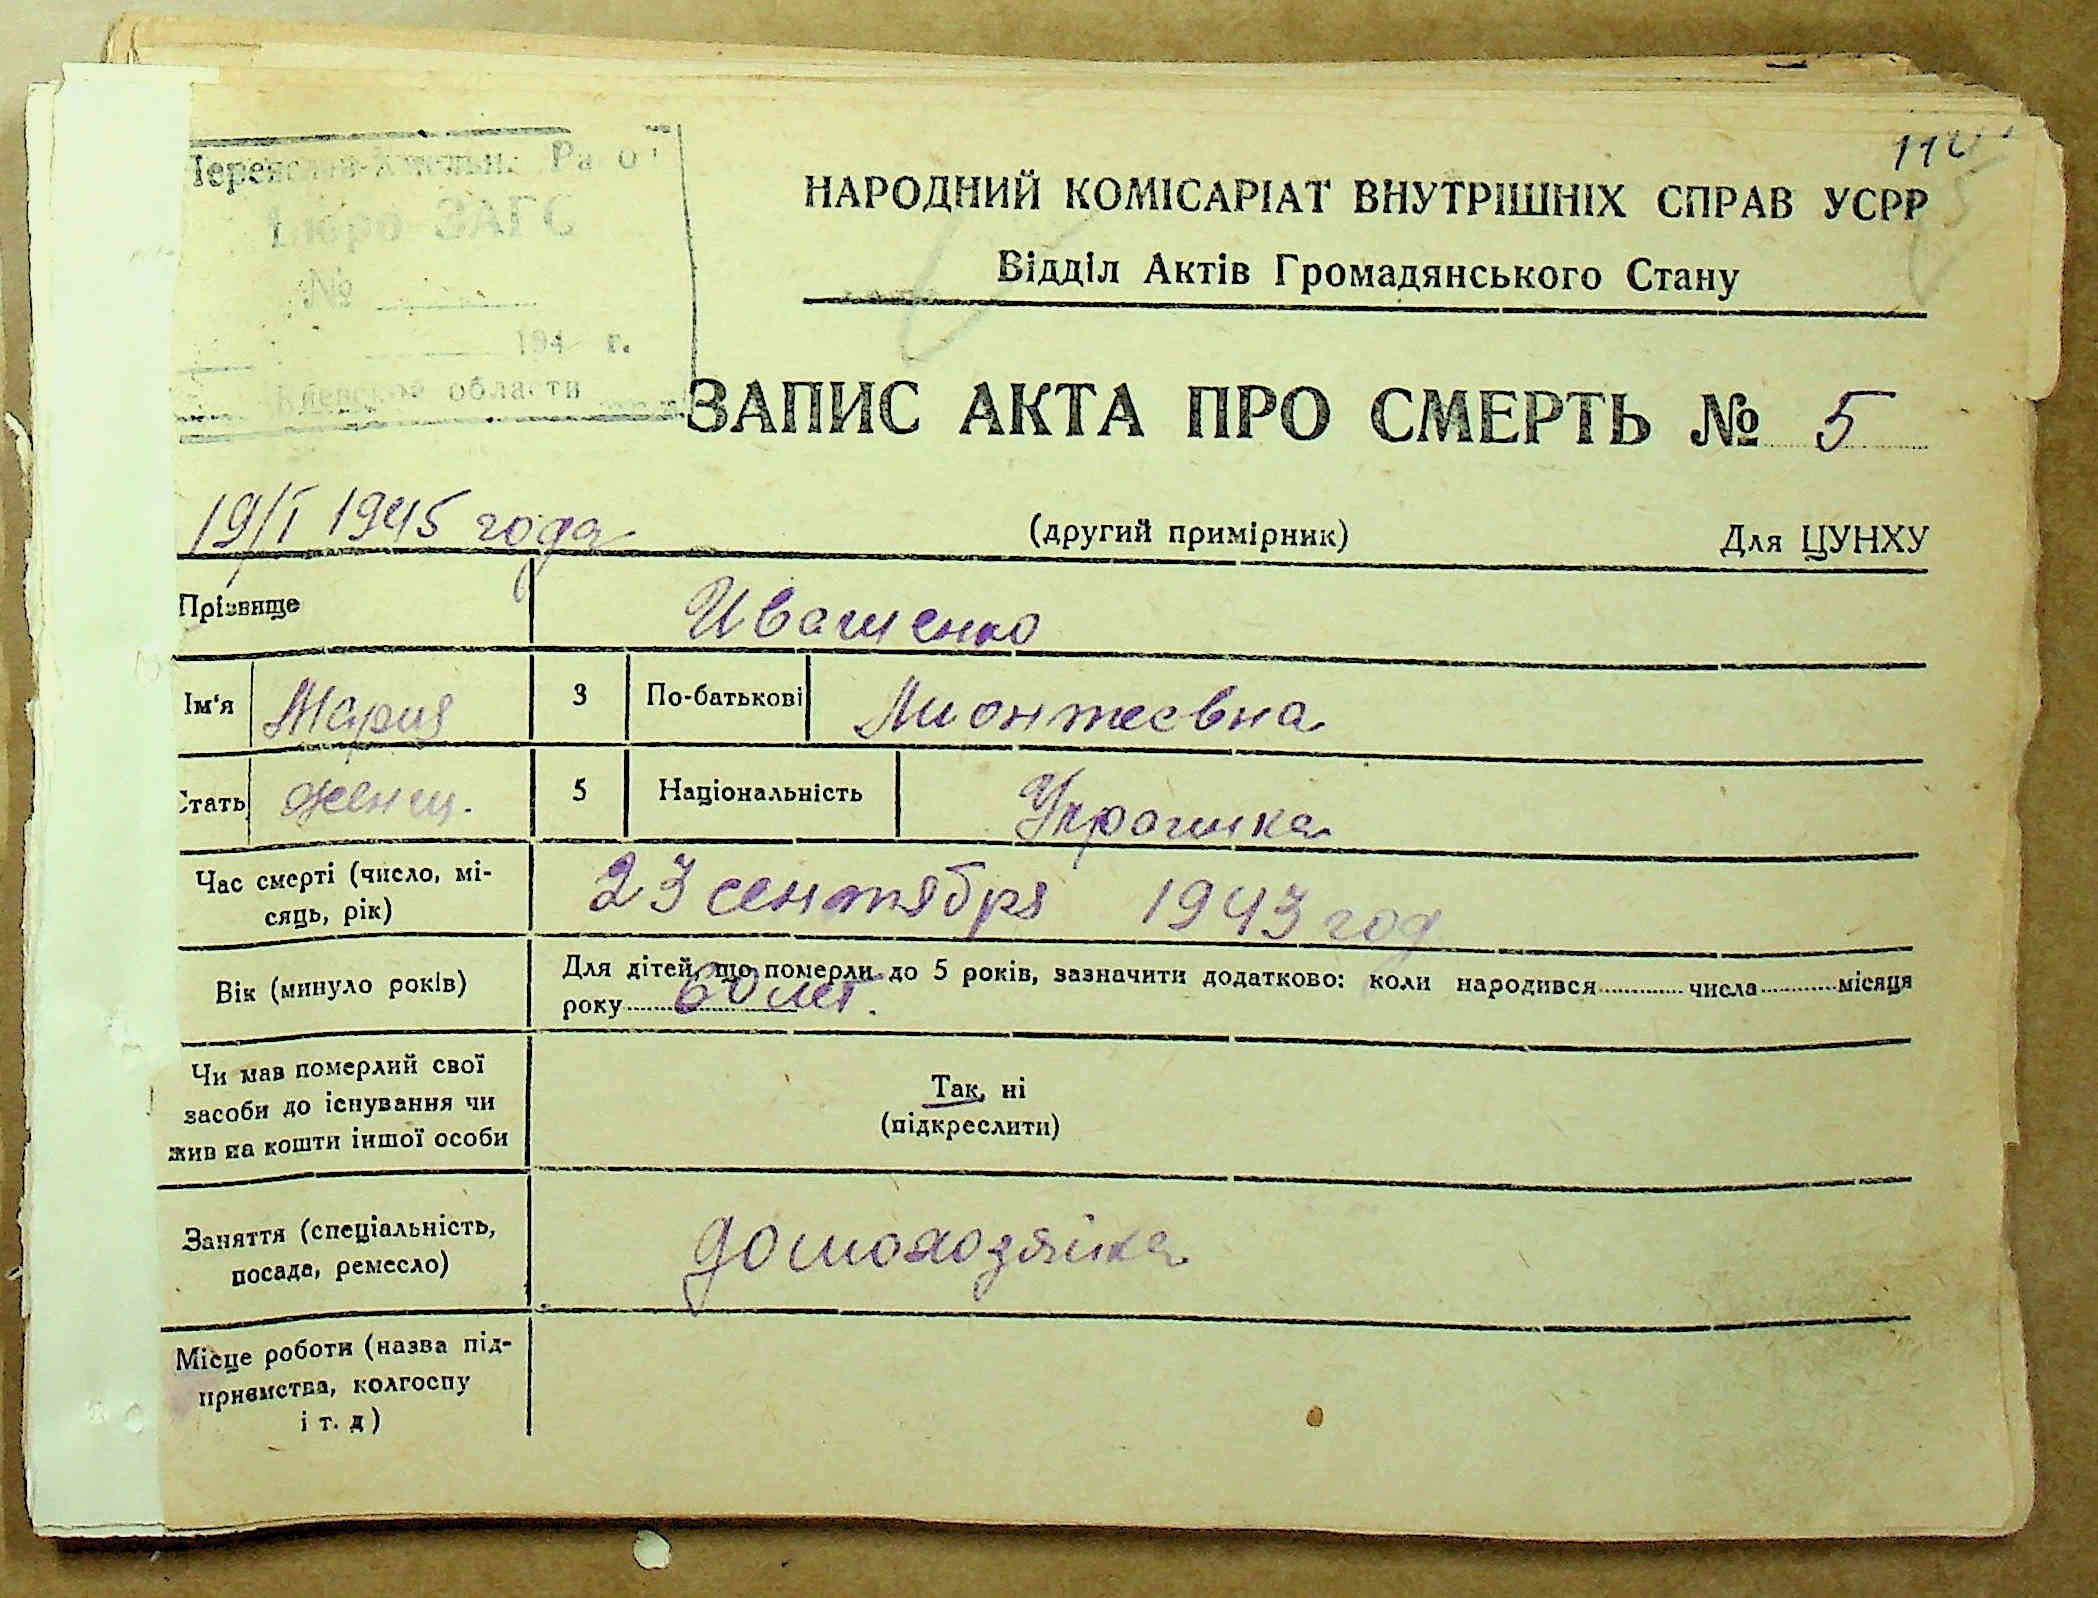 Бюро ЗАГС
№
194 г.
Киевской области
НАРОДНИЙ КОМІСАРІАТ ВНУТРІШНІХ СПРАВ УСРР
Відділ Актів Громадянського Стану
ЗАПИС АКТА ПРО СМЕРТЬ № 5
19/I 1945 года
(другий примірник) Для ЦУНХУ
Прізвище Иващенко
Ім'я Мария 3 По-батькові Лионтеевна
Стать женщ. 5 Національність Украинка
Час смерті (число, мі-
сяць, рік) 23 сентября 1943 год
Вік (минуло років) 60 лет.
Для дітей, що померли до 5 років, зазначити додатково: коли народився числа місяця
року
Чи мав померлий свої
засоби до існування чи
жив на кошти іншої особи
Так, ні
(підкреслити)
Заняття (спеціальність,
посада, ремесло) домохозяйка
Місце роботи (назва під-
приємства, колгоспу
і т. д)